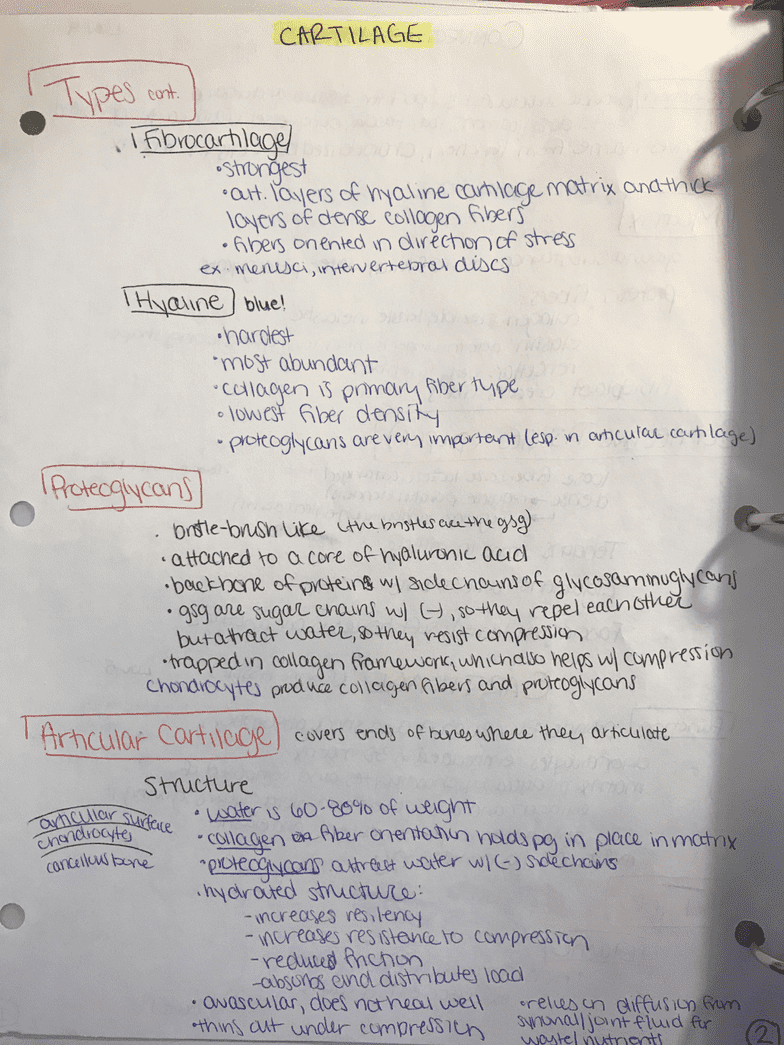 CARTILAGE
Types cont.
Fibrocartilage
• strongest
• art. layers of hyaline cartilage matrix and thick
layers of dense collagen fibers
• fibers oriented in direction of stress
ex. menisci, intervertebral discs
Hyaline blue!
• hardest
• most abundant
• collagen is primary fiber type
• lowest fiber density
• proteoglycans are very important (esp. in articular cartilage)
Proteoglycans
• bristle-brush like (the bristles are the gsg)
• attached to a core of hyaluronic acid
• backbone of proteins w/ sidechains of glycosaminoglycans
• gsg are sugar chains w/ (-), so they repel each other
but attract water, so they resist compression
• trapped in collagen framework, which also helps w/ compression
chondrocytes produce collagen fibers and proteoglycans
Articular Cartilage covers ends of bones where they articulate
Structure
articular surface
chondrocytes
cancellous bone
• water is 60-80% of weight
• collagen fiber orientation holds pg in place in matrix
• proteoglycans attract water w/ (-) sidechains
• hydrated structure:
- increases resiliency
- increases resistence to compression
- reduces friction
- absorbs and distributes load
• avascular, does not heal well
• thins out under compression
• relies on diffusion from
synovial/joint fluid for
waste/nutrients
2